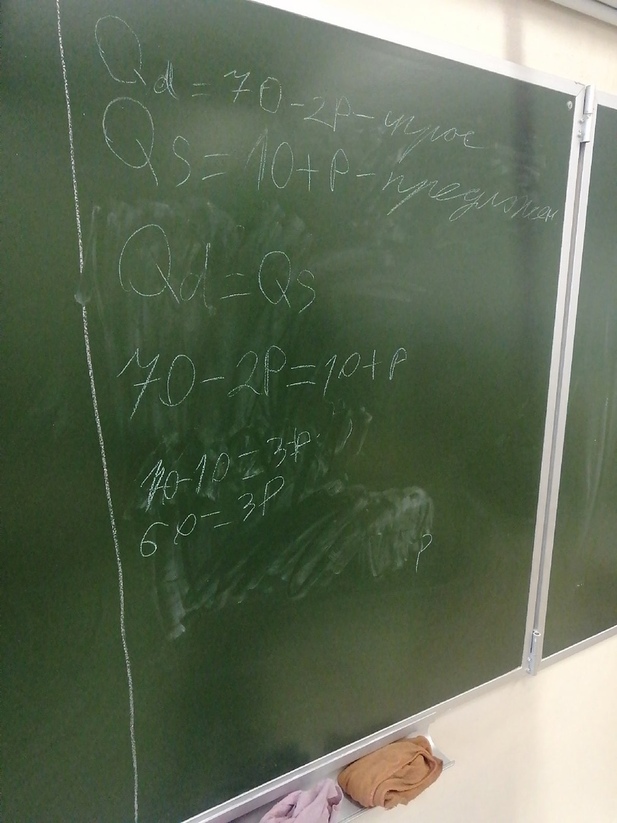 Qd = 70 - 2P - спрос
Qs = 10 + P - предложен
Qd = Qs
70 - 2P = 10 + P
70 - 10 = 3P
60 = 3P
P